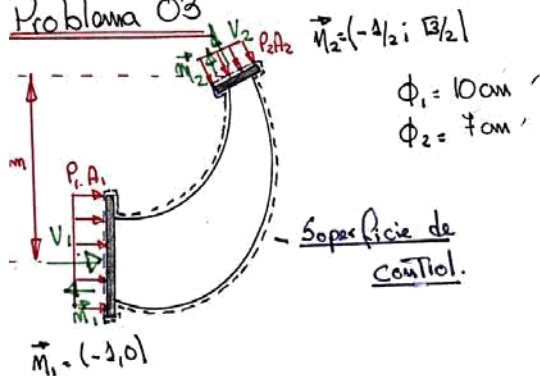 Problema 03
V₂
P₂A₂
m⃗₂
m⃗₂=(-1/2; √3/2)
ϕ₁= 10cm
ϕ₂= 7cm
m
P₁.A₁
V₁
m⃗₁
Superficie de
control.
m⃗₁=(-1,0)